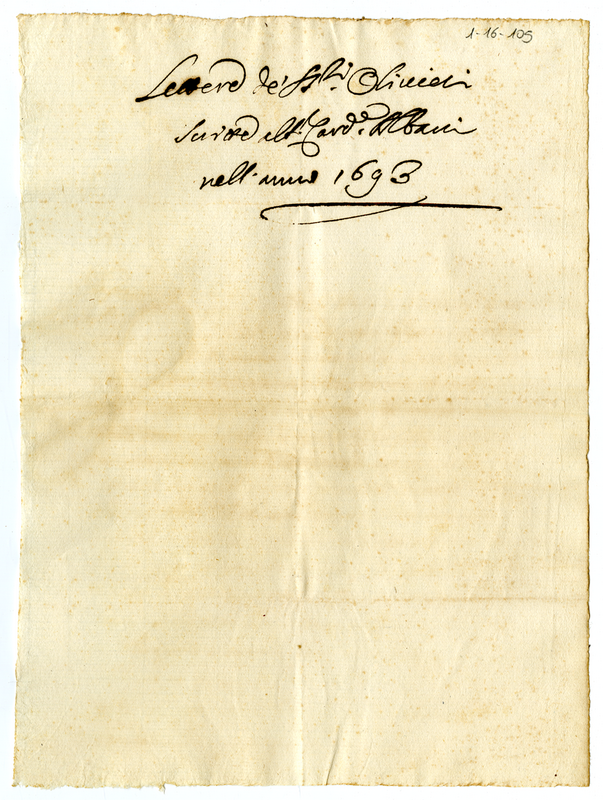 1-16-105
Lettere de' SS.ri Olivieri
scritte al S.r Card.e Albani
nell'anno 1693